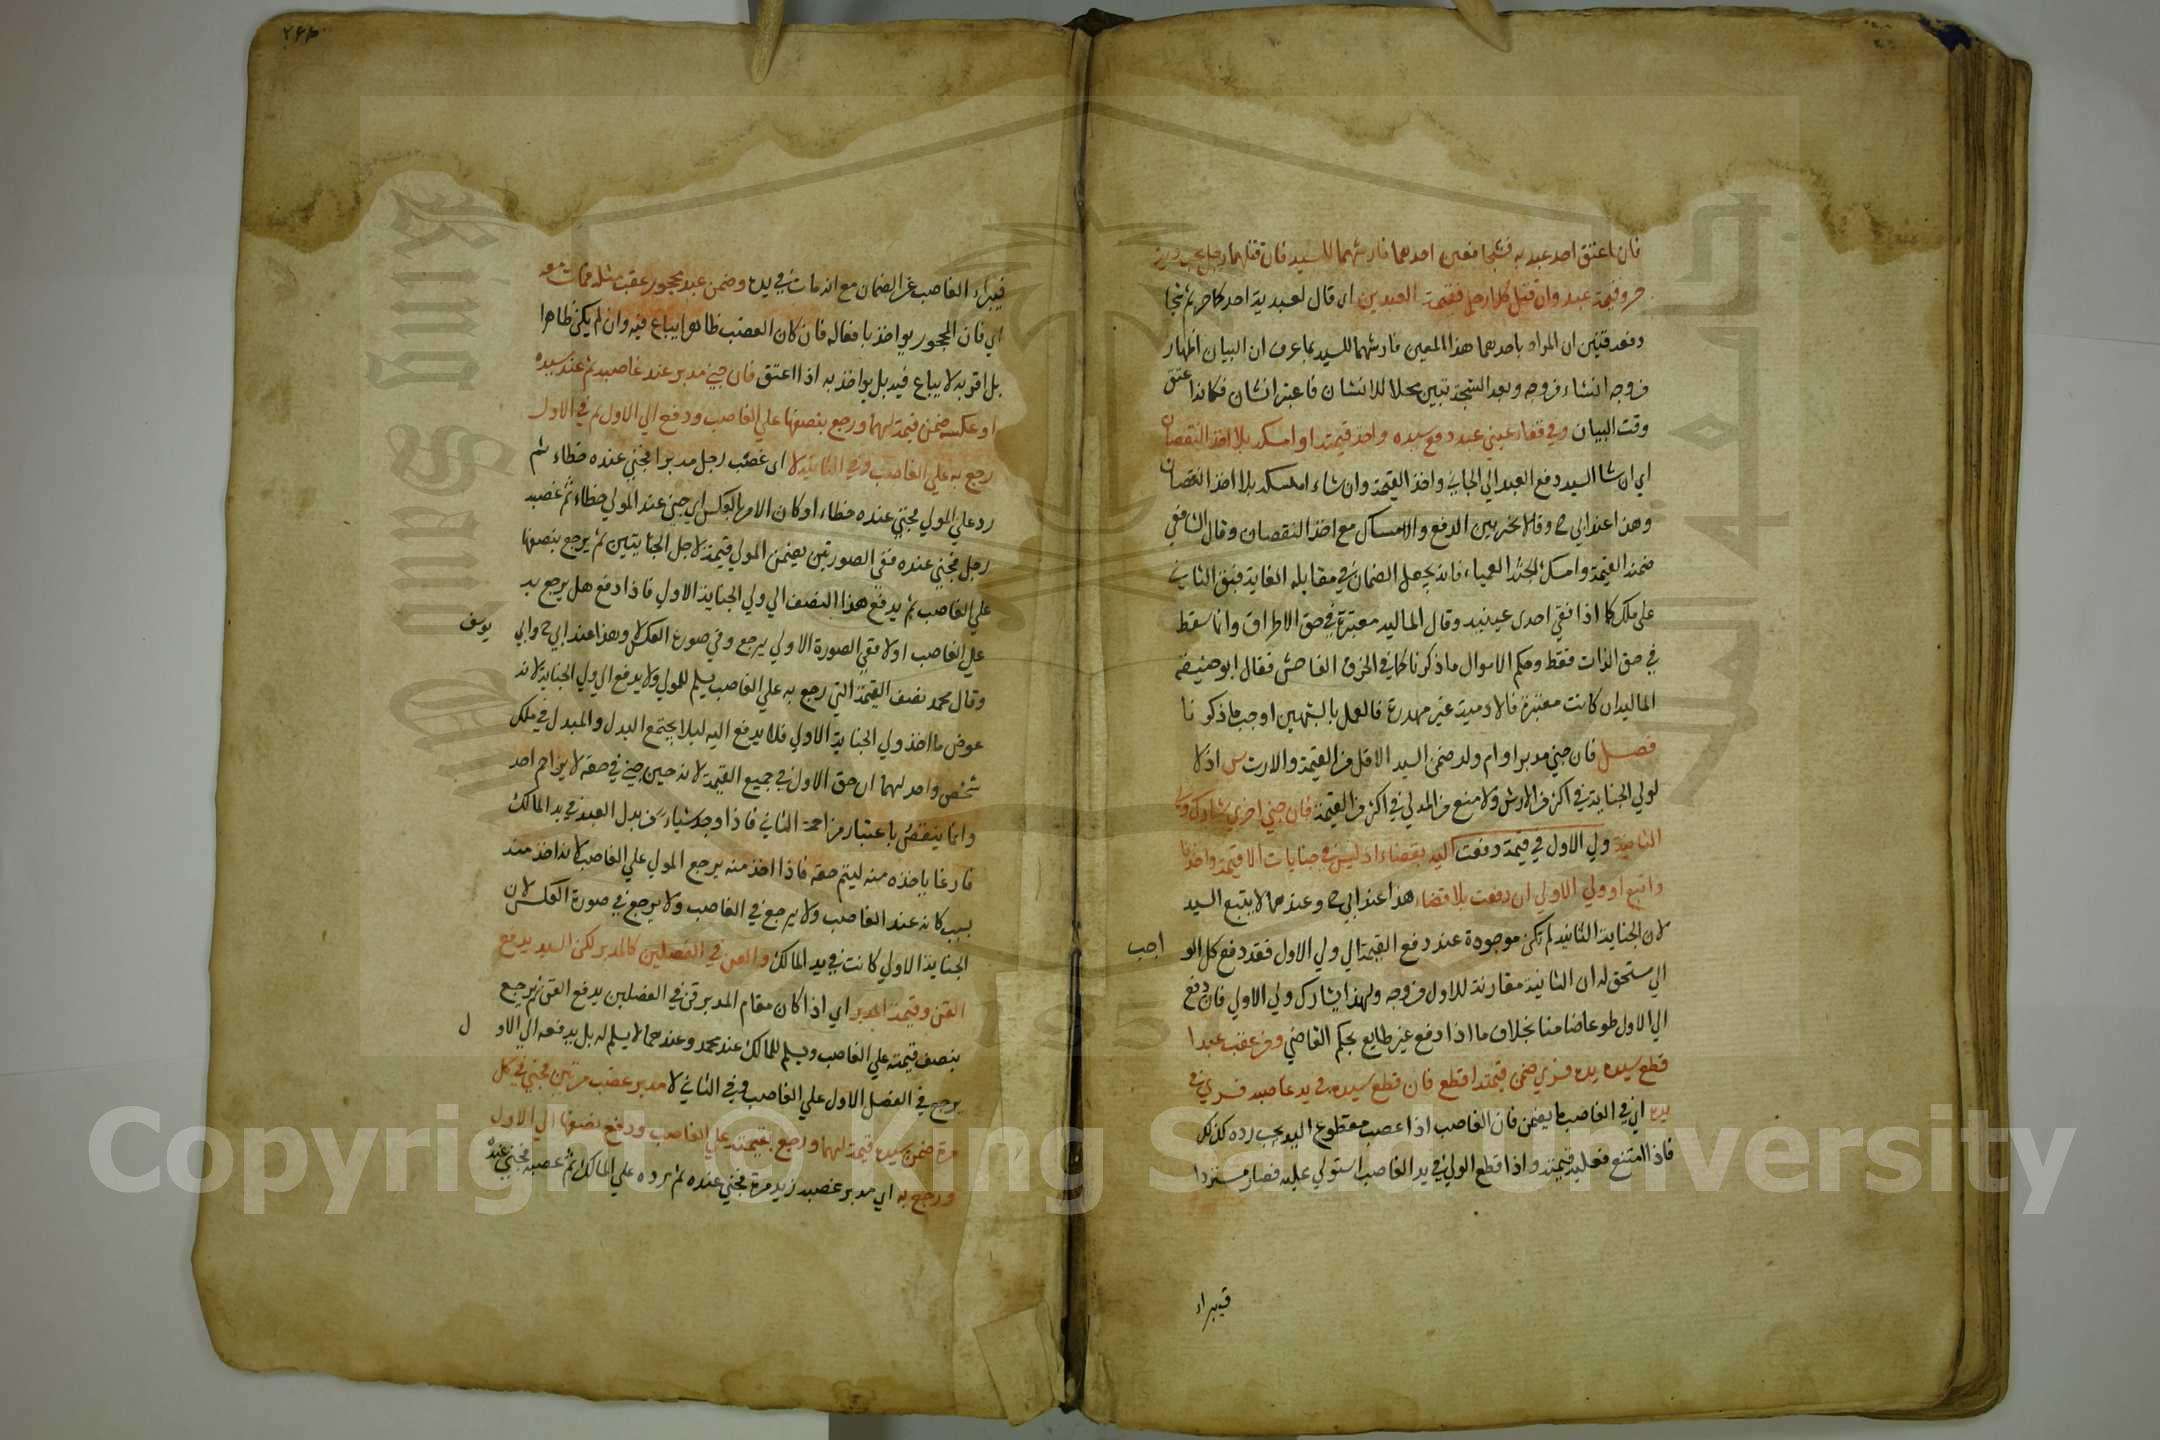 فان اعتق احد عبديه فشجا فعين احدهما فارشهما للسيد فان قتلهما رجل يجب دية
حر وقيمة عبد وان قتل كلا رجل فقيمة العبدين اى قال لعبديه احدكما حر ثم شجا
فعين ان المراد باحدهما هذا المعين فارشهما للسيد لما عرف ان البيان اظهار
من وجه انشاء من وجه وبعد الشجة تبين محلا للانشان فاعتبر انشان فكانه اعتق
وقت البيان وفي فقاء عيني عبد دفع سيده واخذ قيمته او امسكه بلا اخذ النقصان
اي ان شا السيد دفع العبد الي الجاني واخذ القيمة وان شاء امسكه بلا اخذ النقصان
وهذا عند ابي ح وقالا تخير بين الدفع والامساك مع اخذ النقصان وقال الشافعي
ضمنه القيمة وامسك الجثة العمياء فانه يجعل الضمان في مقابلة الفايتة فبقي الثاني
على ملكه كما اذا فقي احدى عينيه وقال المالية معتبرة في حق الاطراف وانما سقط
في حق الذات فقط وحكم الاموال ما ذكرنا كما في الخرق الفاحش فقال ابو حنيفة
المالية ان كانت معتبرة فالادمية غير مهدرة فالعمل بالشبهين اوجب ما ذكرنا
فصل فان جني مدبر او ام ولد ضمن السيد الاقل من القيمة والارش اذ لا
لولي الجناية في اكثر من الارش ولا منع من المولي في اكثر من القيمة فان جني اخري شارك ولي
الثانية ولي الاول في قيمة دفعت اليه بقضاء اذ ليس في جنايات الا قيمة واحدة
واتبع او ولي الاولي ان دفعت بلا قضاء هذا عند ابي ح وعندهما لا يتبع السيد
لان الجناية الثانية لم تكن موجودة عند دفع القيمة الي ولي الاول فقد دفع كل الو اجب
الي مستحق له ان الثانية مقارنة للاول من وجه ولهذا يشارك ولي الاولي فان دفع
الي الاول طوعا ضامنا بخلاف ما اذا دفع غير طايع بحكم القاضي ومن غصب عبدا
قطع سيده يده فسري ضمن قيمته اقطع فان قطع سيده في يد غاصبه فسري في
يده اي في الغاصب لا يضمن فان الغاصب اذا غصب مقطوع اليد يجب رده كذلك
فاذا امتنع فعليه قيمته واذا قطع المولي في يد الغاصب استولي عليه فصار مستردا
فيبراء
٢٤٣
فيبراء الغاصب عن الضمان مع انه مات في يده وضمن عبد محجور غصب مثله فمات معه
اي فان المحجور يواخذ بافعاله فان كان الغصب ظاهرا يباع فيه وان لم يكن ظاهرا
بل اقر به لا يباع فيه بل يواخذ به اذا اعتق فان جني مدبر عند غاصبه ثم عند سيده
او عكسه ضمن قيمة لهما ورجع بنصفها علي الغاصب ودفع الي الاول ثم في الاول
رجع به علي الغاصب وفي الثانية لا اى غصب رجل مدبرا فجني عنده خطاء ثم
رد علي المولي فجني عنده خطاء او كان الامر بالعكس اي جني عند المولي خطاء ثم غصبه
رجل فجني عنده ففي الصورتين يضمن المولي قيمة لاجل الجنايتين ثم يرجع بنصفها
علي الغاصب ثم يدفع هذا النصف الي ولي الجناية الاول فاذا دفع هل يرجع به
علي الغاصب او لا ففي الصورة الاولي يرجع وفي صورة العكس لا وهذا عند ابي ح وابي يوسف
وقال محمد نصف القيمة التي رجع به علي الغاصب يسلم للمولي ولا يدفع الي ولي الجناية لانه
عوض ما اخذ ولي الجناية الاولي فلا يدفع اليه ليلا يجتمع البدل والمبدل في ملك
شخص واحد لهما ان حق الاول في جميع القيمة لانه حين جني في حقه لا يزاحم احد
وانما ينتقض باعتبار مزاحمة الثاني فاذا وجد شياء من بدل العبد في يد المالك
فارغا ياخذه منه ليتم حقه فاذا اخذ منه يرجع المولي علي الغاصب لانه اخذ منه
بسبب كانه عند الغاصب ولا يرجع في الغاصب ولا يرجع في صورة العكس لان
الجناية الاولي كانت في يد المالك والقن في الفصلين كالمدبر لكن السيد يدفع
القن وقيمة المدبر اي اذا كان مقام المدبر قن في الفصلين يدفع القن ثم يرجع
بنصف قيمته علي الغاصب ويسلم للمالك عند محمد وعندهما لا يسلم له بل يدفعه الي الاو ل
يرجع في الفصل الاول علي الغاصب وفي الثاني لا مدبر غصب مرتين فجني في كل
مرة ضمن سيده قيمة لهما ورجع بقيمته علي الغاصب ودفع نصفها الي الاول
ورجع به اي مدبر غصبه زيد مرة فجني عنده ثم رده علي المالك ثم غصبه فجني عنده
Copyright © King Saud University